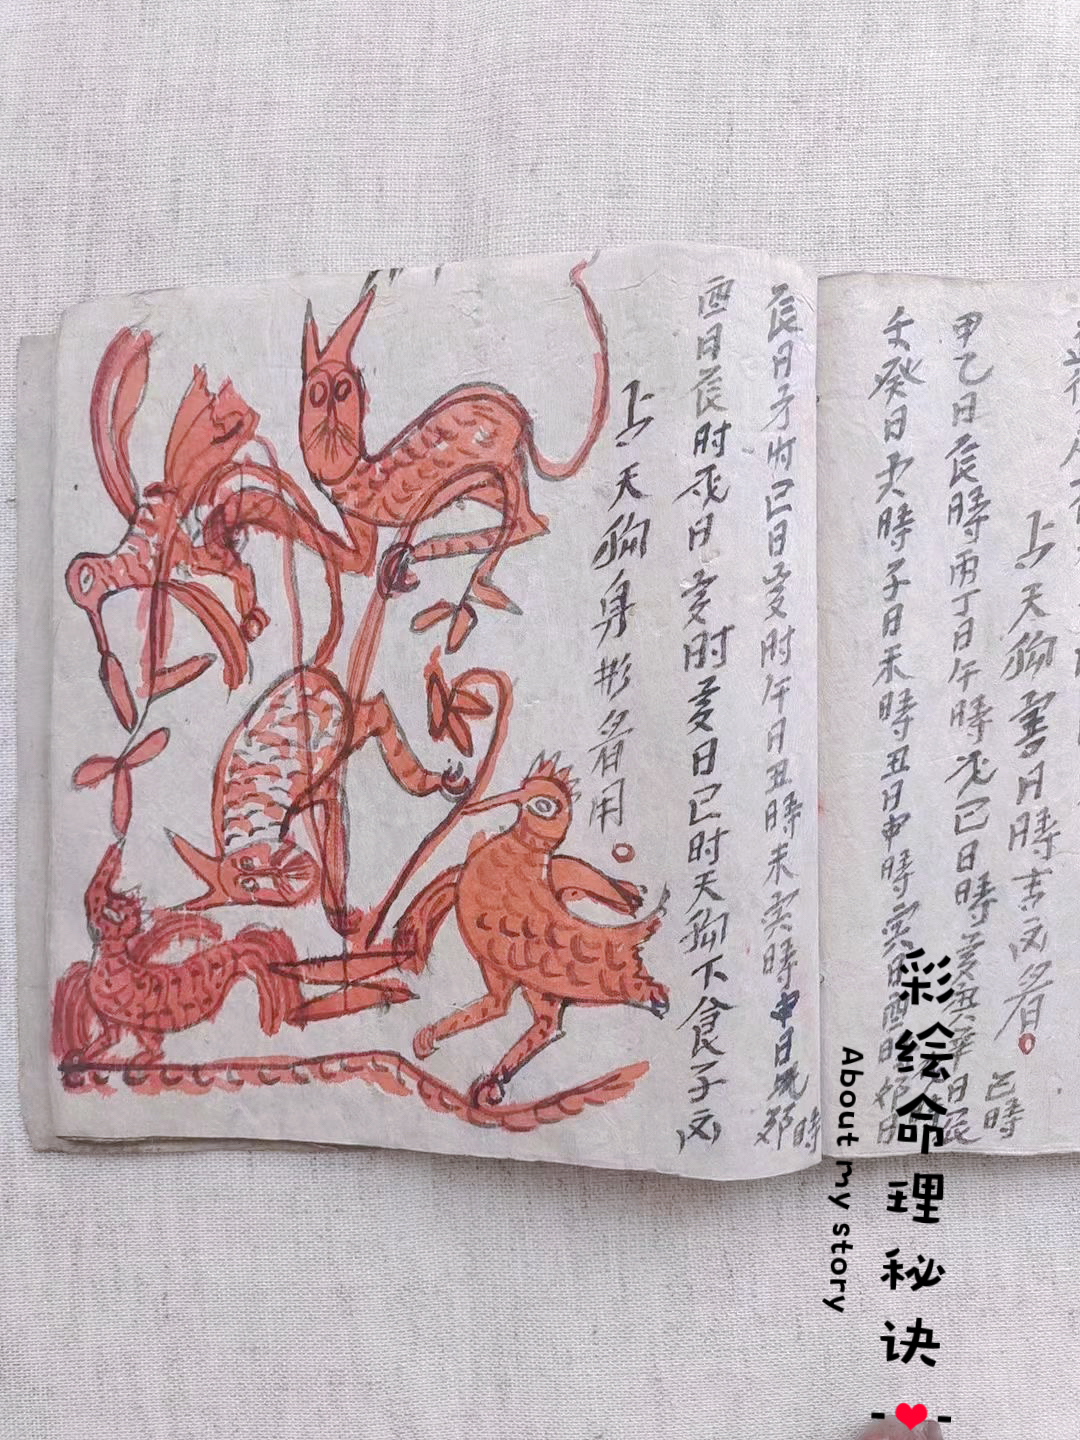 上天狗書日時吉凶看
甲乙日辰時丙丁日午時戊己日時亥庚辛日辰
巳時
壬癸日 時子日未時丑日申時寅日酉時卯日
辰日子时巳日亥时午日丑時未寅時申日 卯時
酉日辰时戌日亥时亥日巳时天狗下食子凶
上天狗身形看用
彩绘命理秘诀
About my story